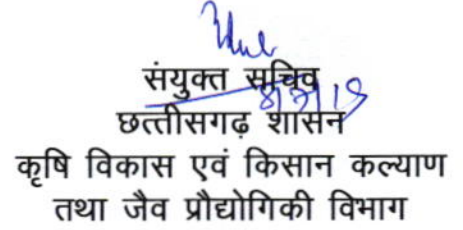 संयुक्त सचिव
छत्तीसगढ़ शासन
कृषि विकास एवं किसान कल्याण
तथा जैव प्रौद्योगिकी विभाग